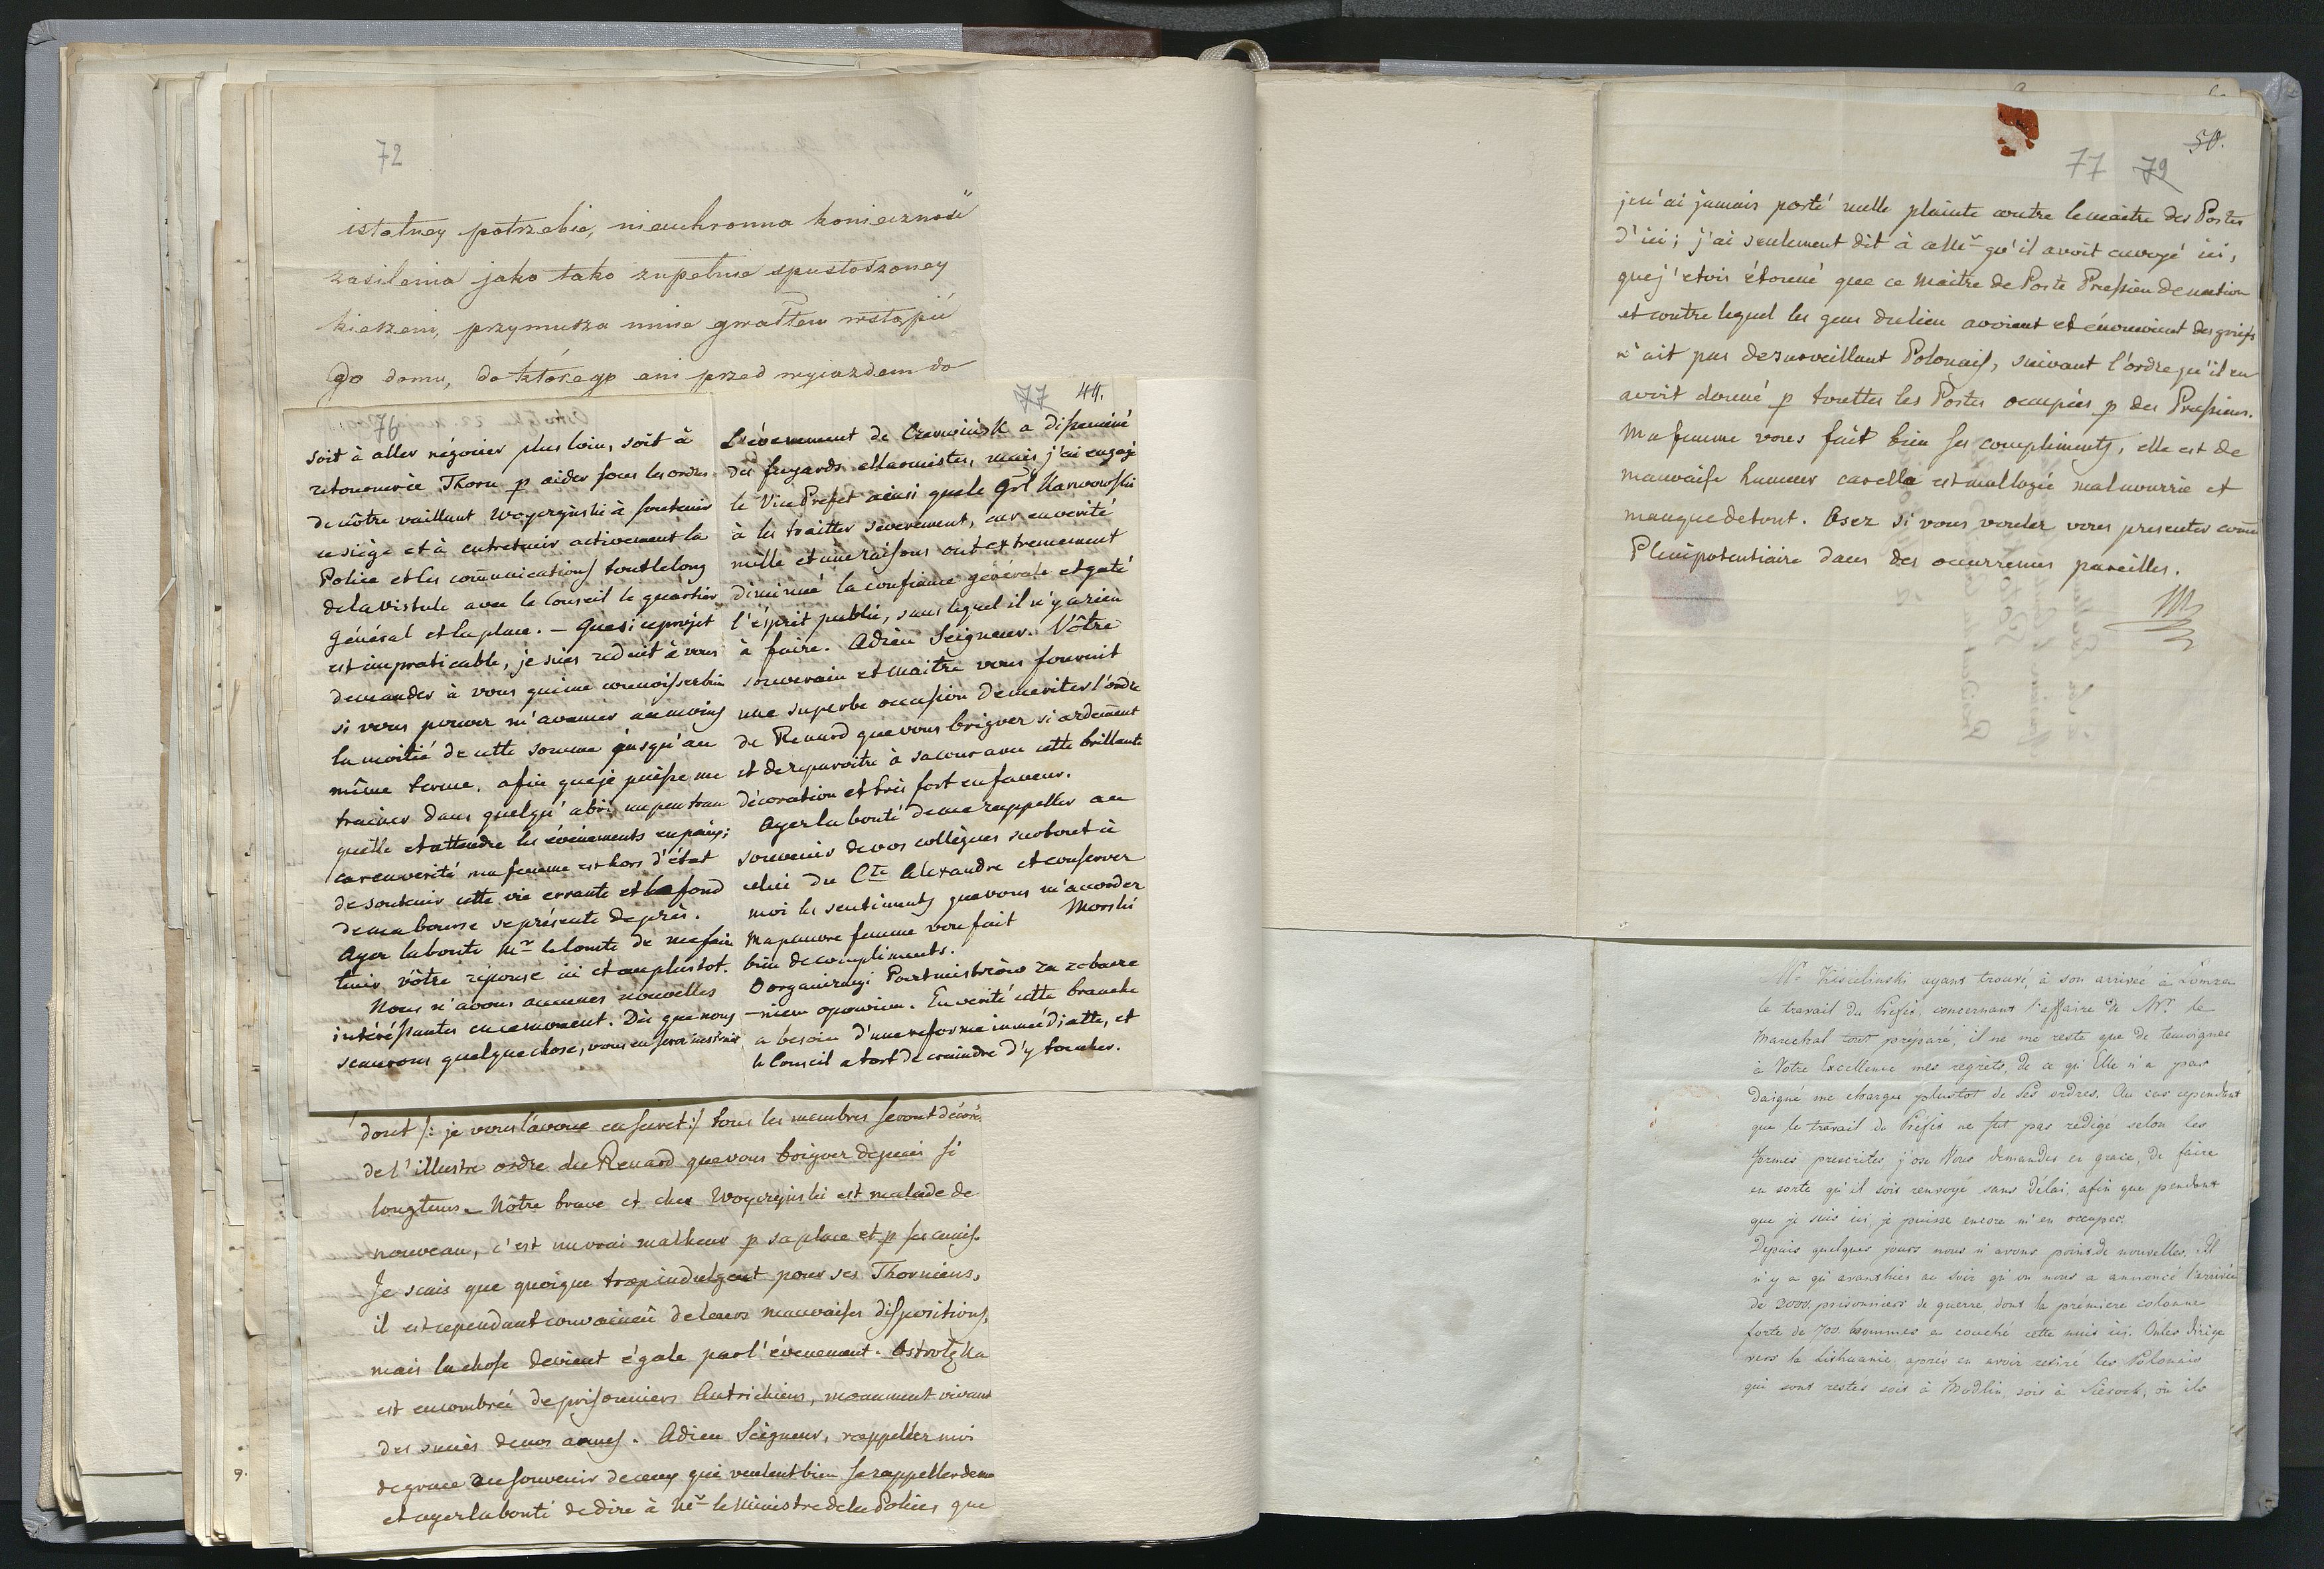 72
istotney potrzebie, nieuchronna konieczność
zasilenia jako tako zupełnie spustoszoney
kieszeni, przymusza mnie gwałtem wstąpić
do domu, do którego ani przed wyjazdem do
76
soit à aller négocier plus loin, soit à
retourner à Thorn p aider sous les ordres
de nôtre vaillant Woyczyński à soutenir
ce siège et à entretenir activement la
Police et les com̃unications tout le long
de la Vistule avec le Conseil le quartier
général et la place. – Que si ce projet
est impraticable, je suis reduit à vous
demander à vous qui me connoissez bien
si vous pouvez m'avancer au moins
la moitié de cette somme jusqu'au
même terme, afin que je puisse me
trainer dans quelqu'abri un peu tran
quille et attendre les événements en paix;
car en verité ma femme est hors d'état
de soutenir cette vie errante et le fond
de ma bourse se présente de près.
Ayez la bonté Mr le Comte de me faire
tenir vôtre réponse ici et au plustot.
Nous n'avons aucunes nouvelles
intéréssantes en ce moment. Dès que nous
scaurons quelque chose, vous en serez instruit
77 49.
L'évenement de Czerwińsk a disseminé
des fuyards allarmistes, mais j'ai engagé
le Vice Prefet ainsi que le Gñl Karwowski
à les traitter séverement, car en verité
mille et une raisons ont extremement
diminué la confiance générale et gaté
l'ésprit public, sans lequel il n'y a rien
à faire. Adieu Seigneur. Vôtre
souverain et maitre vous fournit
une superbe occasion de meriter l'ordre
de Renard que vous briguez si ardem̃ent
et de reparoitre à sa cour avec cette brillante
décoration et très fort en faveur.
Ayez la bonté de me rappeller au
souvenir de vos collègues surtout à
celui du Cte Alexandre et conserver
moi les sentiments que vous m'accordez
Morski
Ma pauvre femme vous fait
bien de compliments.
En verité cette branche
a besoin d'une reforme immédiatte, et
le Conseil a tort de craindre d'y toucher.
dont /: je vous l'avoue en secret :/ tous les membres seront décoré
de l'illustre ordre du Renard que vous briguez depuis si
longtems. Nôtre brave et cher Woyczyński est malade de
nouveau, c'est un vrai malheur p sa place et p ses amis.
Je scais que quoique trop indulgent pour ses Thorniens,
il est cependant convaincu de leurs mauvaises dispositions,
mais la chose devient égale par l'évenement. Ostrołęka
est encombrée de prisonniers Autrichiens, monument vivant
des succès de nos armes. Adieu Seigneur, rappellez moi
de grace au souvenir de ceux qui veulent bien se rappeller de moi
et ayez la bonté de dire à Mr le Ministre de la Police, que
50.
77 79
je n'ai jamais porté nulle plainte contre le maitre des Postes
d'ici; j'ai seulement dit à celui qu'il avoit envoyé ici,
que j'etois étonné que ce Maitre de Poste Prussien de nation
et contre lequel les gens du lieu avoient et énonçoient des griefs
n'ait pas de surveillant Polonais, suivant l'ordre qu'il en
avoit donné p touttes les Postes occupées p des Prussiens.
Ma femme vous fait bien ses compliments, elle est de
mauvaise humeur car elle est mal logée mal nourrie et
manque de tout. Osez si vous voulez vous presenter com̃e
Plenipotentiaire dans des occurrences pareilles.
M
Mr Kisielinski ayant trouvé, à son arrivée à Łomza
le travail du Préfet, concernant l'affaire de Mr. le
Marechal tout préparé, il ne me reste que de temoigner
à Votre Excellence mes regrets, de ce qu'Elle n'a pas
daigné me charger plustot de Ses ordres. Au cas cependant
que le travail du Préfet ne fut pas rédigé selon les
formes prescrites, j'ose Vous demander en grace, de faire
en sorte qu'il soit renvoyé sans délai, afin que pendant
que je suis ici, je puisse encore m'en occuper.
Depuis quelques jours nous n'avons point de nouvelles. Il
n'y a qu'avanthier au soir qu'on nous a annoncé l'arrivée
de 2000. prisonniers de guerre, dont la prémiere colonne
forte de 700. hommes a couché cette nuit ici. On les dirige
vers la Lithuanie, après en avoir retiré les Polonais
qui sont restés soit à Modlin, soit à Sierock, où ils